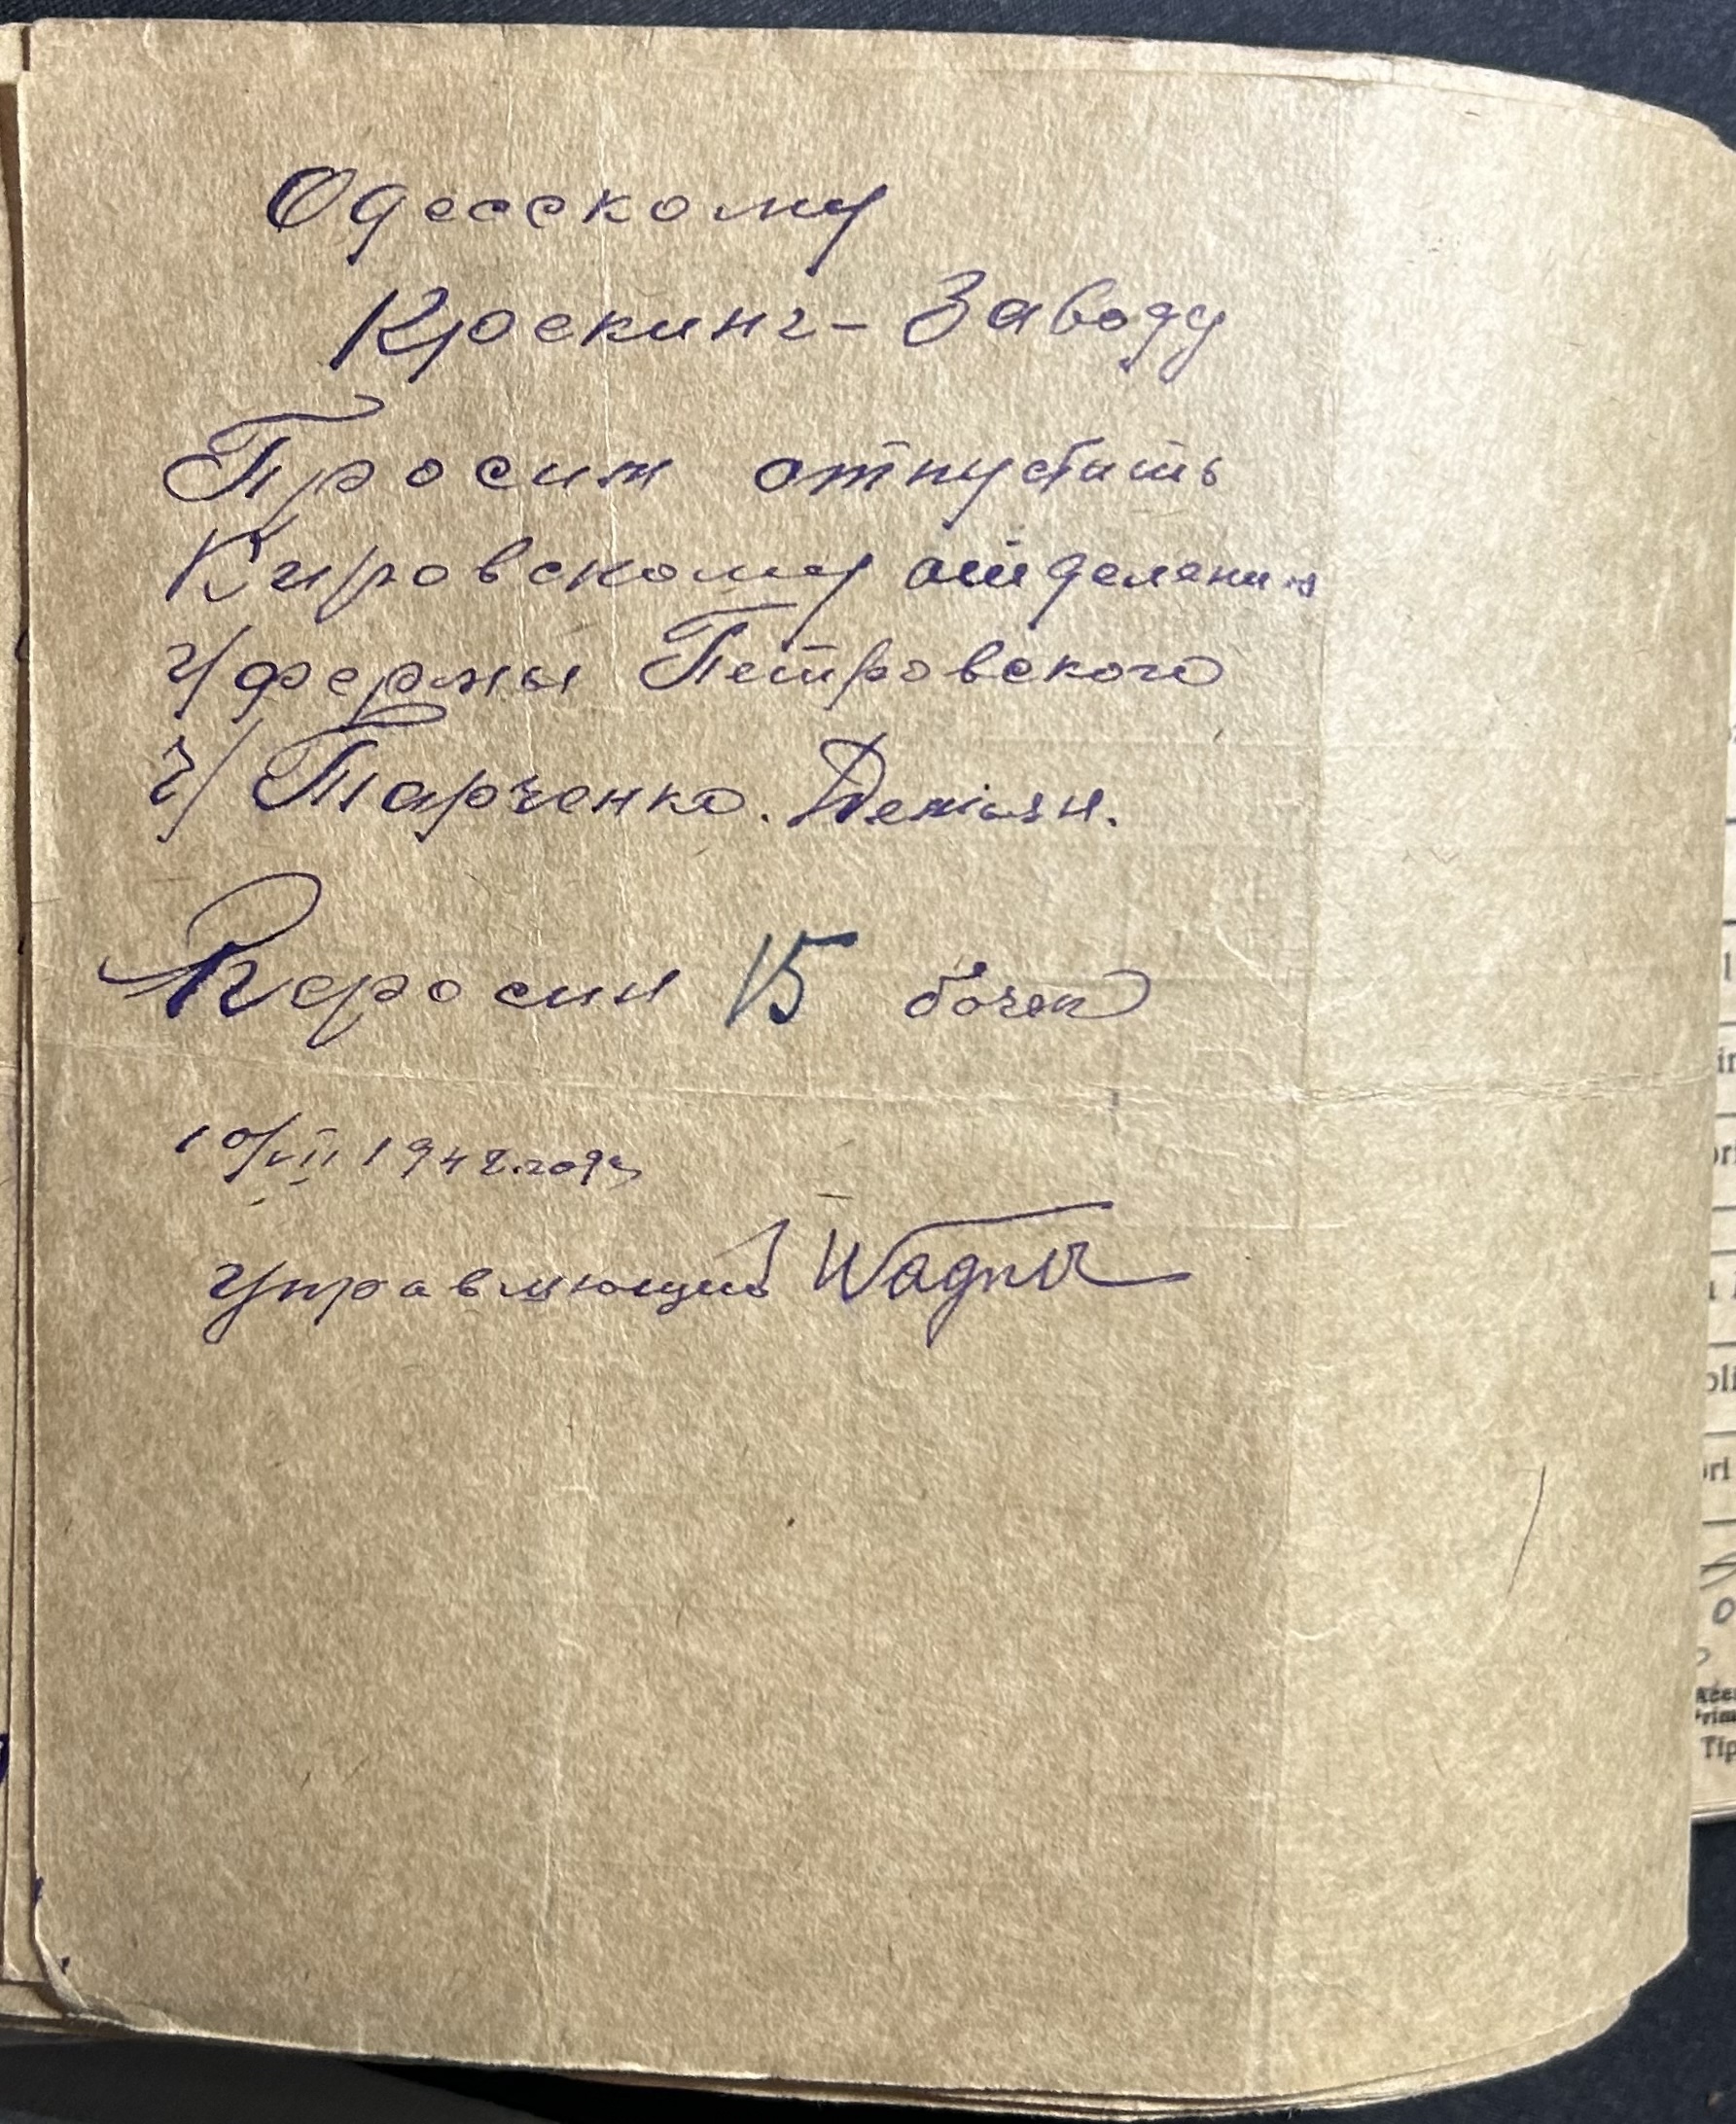 Одесскому
Крекинг-Заводу
Просим отпустить
Кировскому отделению
ч/фермы Петровского
ч/ Тарченко. Демьян.
Керосин 15 бочек
10/VII 1942 года
Управляющий Wagner